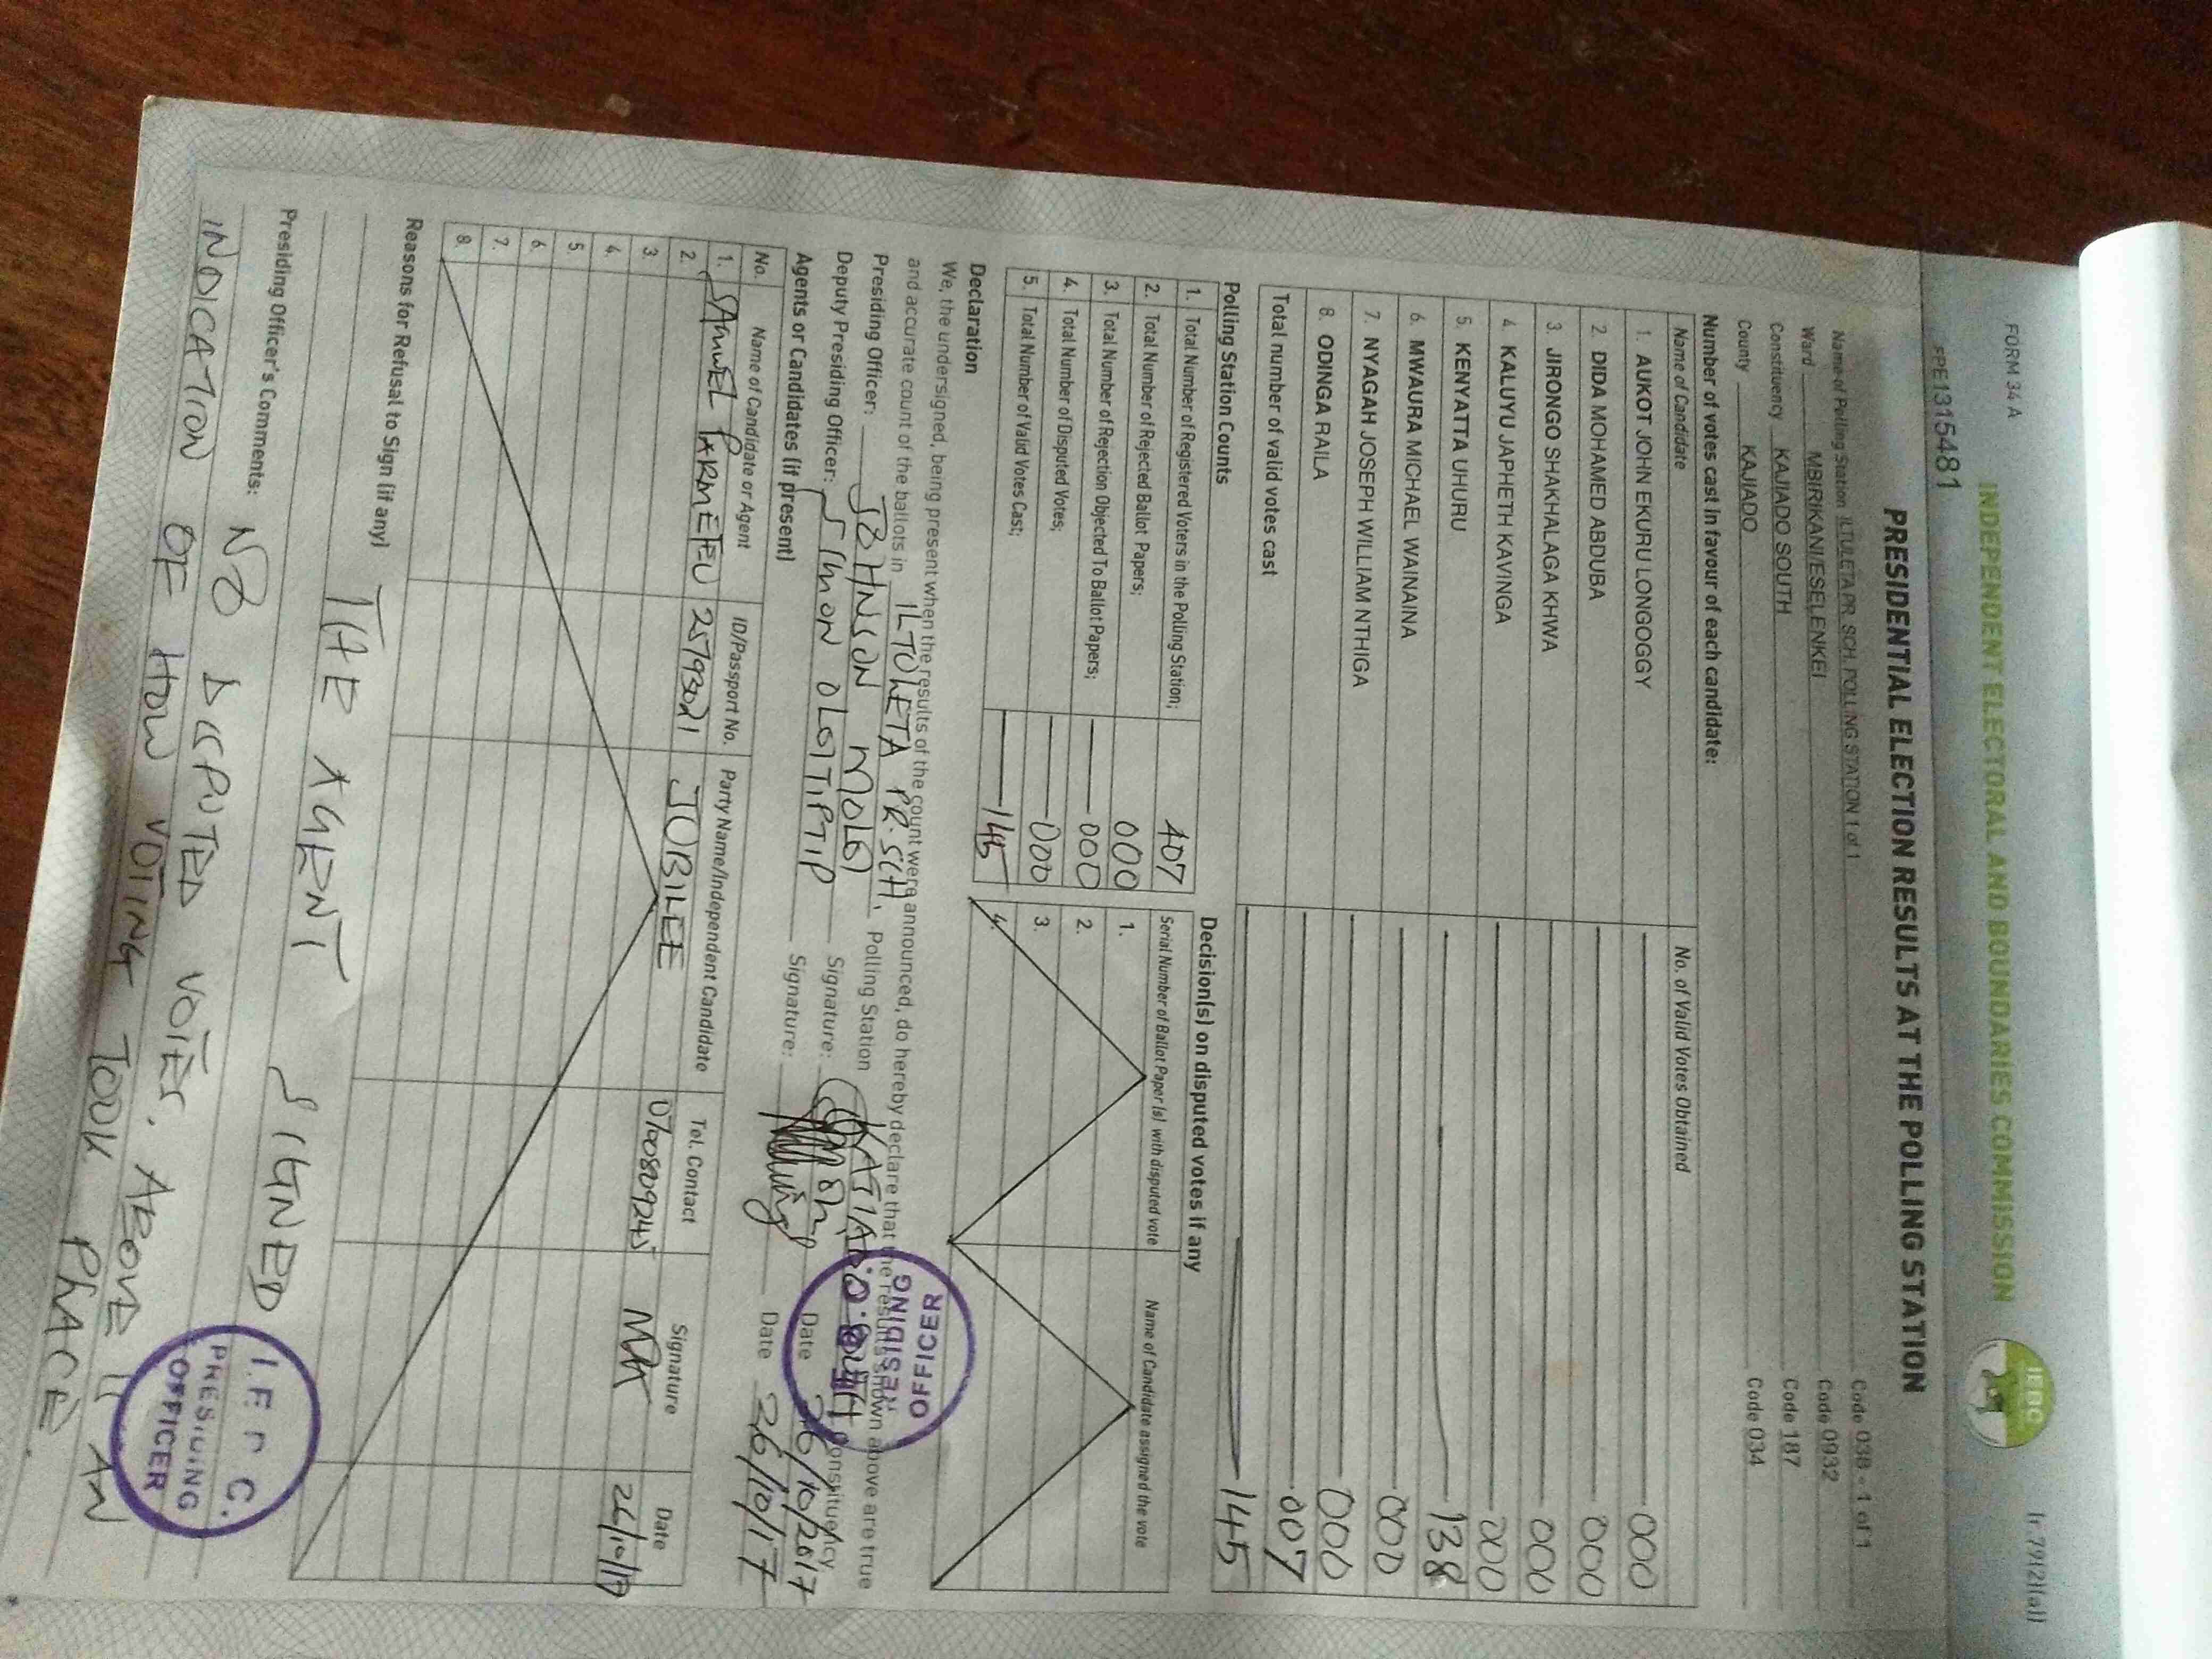 FORM 34 A
(r.79(2)(a))
INDEPENDENT ELECTORAL AND BOUNDARIES COMMISSION
IEBC
FPE1315481
PRESIDENTIAL ELECTION RESULTS AT THE POLLING STATION
Name of Polling Station ILTULETA PR. SCH. POLLING STATION 1 of 1 Code 038 - 1 of 1
Ward MBIRIKANI/ESELENKEI Code 0932
Constituency KAJIADO SOUTH Code 187
County KAJIADO Code 034
Number of votes cast in favour of each candidate:
Name of Candidate No. of Valid Votes Obtained
1. AUKOT JOHN EKURU LONGOGGY 000
2. DIDA MOHAMED ABDUBA 000
3. JIRONGO SHAKHALAGA KHWA 000
4. KALUYU JAPHETH KAVINGA 000
5. KENYATTA UHURU 138
6. MWAURA MICHAEL WAINAINA 000
7. NYAGAH JOSEPH WILLIAM NTHIGA 000
8. ODINGA RAILA 007
Total number of valid votes cast 145
Polling Station Counts
1. Total Number of Registered Voters in the Polling Station; 407
2. Total Number of Rejected Ballot Papers; 000
3. Total Number of Rejection Objected To Ballot Papers; 000
4. Total Number of Disputed Votes; 000
5. Total Number of Valid Votes Cast; 145
Decision(s) on disputed votes if any
Serial Number of Ballot Paper (s) with disputed vote Name of Candidate assigned the vote
1.
2.
3.
4.
Declaration
We, the undersigned, being present when the results of the count were announced, do hereby declare that the results shown above are true
and accurate count of the ballots in ILTULETA PR. SCH. Polling Station KAJIADO SOUTH Constituency
Presiding Officer: JOHNSON MOLOI Signature: Date 26/10/2017
Deputy Presiding Officer: SIMON OLOITIPTIP Signature: Date 26/10/17
PRESIDING
OFFICER
Agents or Candidates (if present)
No. Name of Candidate or Agent ID/Passport No. Party Name/Independent Candidate Tel. Contact Signature Date
1. SAMWEL PARMETEU 25793021 JUBILEE 0700809245 26/10/17
2.
3.
4.
5.
6.
7.
8.
Reasons for Refusal to Sign (if any)
THE AGENT SIGNED
Presiding Officer's Comments: NO DISPUTED VOTES. ABOVE IS AN
INDICATION OF HOW VOTING TOOK PLACE.
I.E.B.C.
PRESIDING
OFFICER